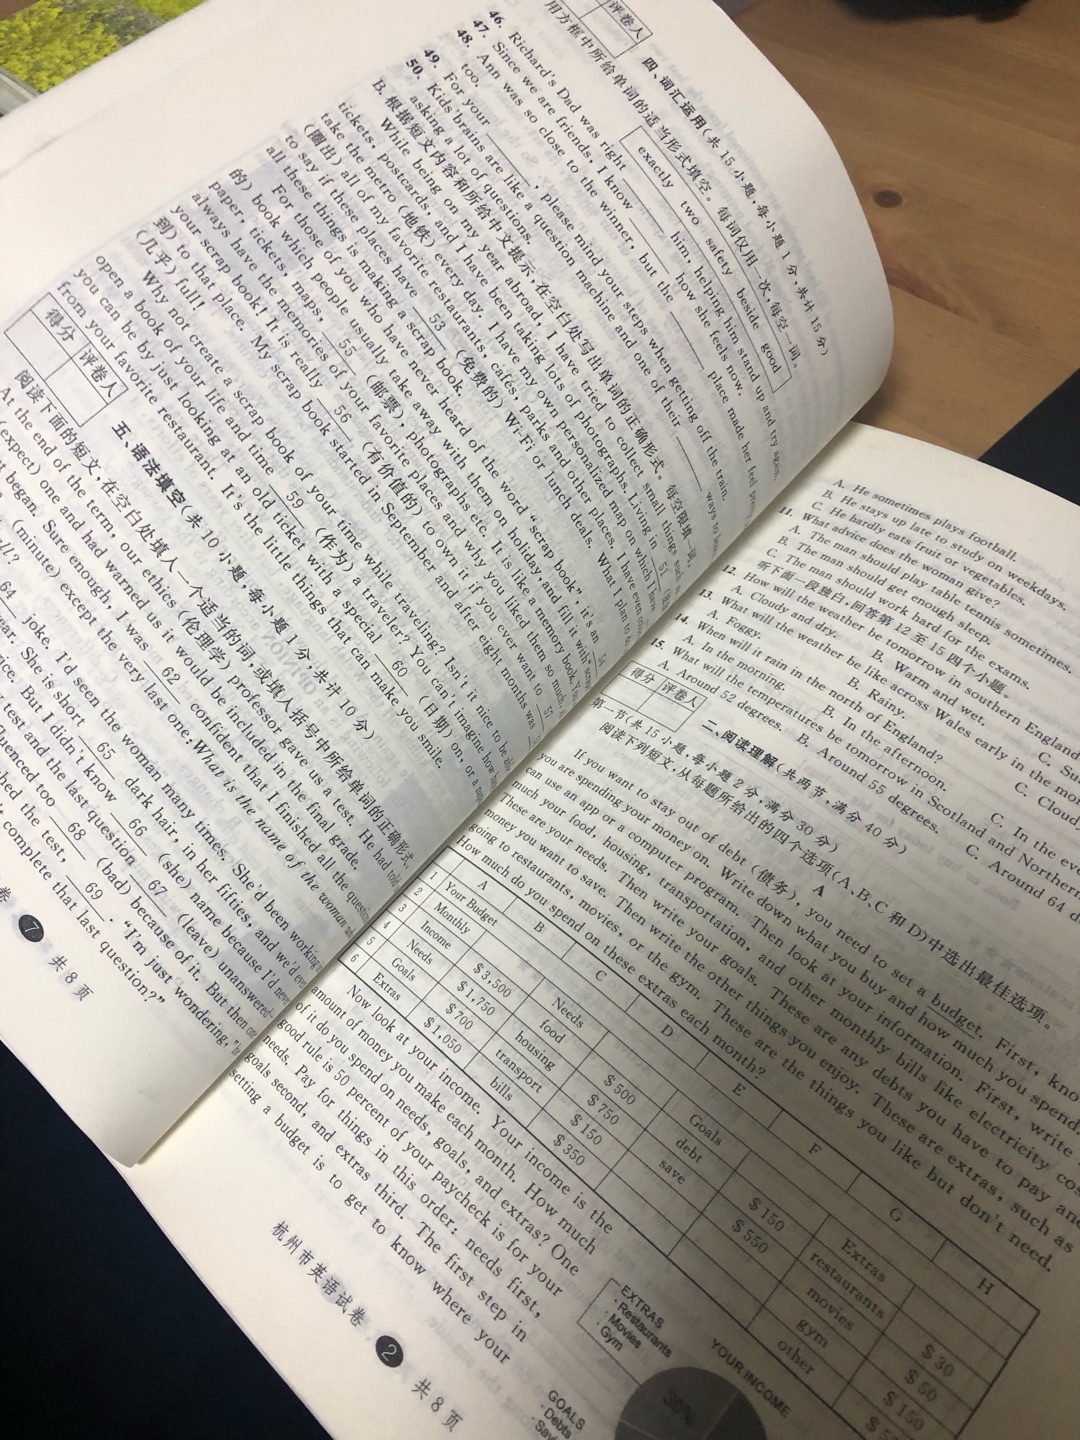 评卷人
四、词汇运用(共 15 小题,每小题 1 分,共计 15 分)
用方框中所给单词的适当形式填空。每词仅用一次,每空一词。
exactly two safety beside good
46. Richard's Dad was right ______ him, helping him stand up and try again.
47. Since we are friends, I know ______ how she feels now.
48. Ann was so close to the winner, but the ______ place made her feel
too.
49. For your ______, please mind your steps when getting off the train.
50. Kids brains are like a question machine and one of their ______ ways to
asking a lot of questions.
B. 根据短文内容和所给中文提示,在空白处写出单词的正确形式。每空限填
While being on my year abroad, I have tried to collect small things such
tickets, postcards, and I have been taking lots of photographs. Living in 51
take the metro (地铁) every day. I have my own personalized map on which I have
(圈出) all of my favorite restaurants, cafés, parks and other places. I have even
to say if these places have 53 (免费的) Wi-Fi or lunch deals. What I plan to
all these things is making a scrap book.
For those of you who have never heard of the word "scrap book", it's an 54
的) book which people usually take away with them on holiday, and fill it with scrap
paper, tickets, maps, 55 (邮票), photographs etc. It is like a memory book.
always have the memories of your favorite places and why you liked them so much
your scrap book! It is really 56 (有价值的) to own it if you ever want to 57
到) to that place. My scrap book started in September and after eight months was
(几乎) full!
Why not create a scrap book of your time while traveling? Isn't it nice to be
open a book of your life and time 59 (作为) a traveler? You can't imagine how
you can be by just looking at an old ticket with a special 60 (日期) on, or a
from your favorite restaurant. It's the little things that can make you smile.
得分 评卷人
五、语法填空(共 10 小题,每小题 1 分,共计 10 分)
阅读下面的短文,在空白处填入一个适当的词,或填入括号中所给单词的正确形式
At the end of the term, our ethics (伦理学) professor gave us a test. He had told
(expect) one and had warned us it would be included in the final grade.
began. Sure enough, I was 62 confident that I finished all the
(minute) except the very last one: What is the name of the woman
64 joke. I'd seen the woman many times. She'd been working
She is short 65 dark hair, in her fifties, and we'd
But I didn't know 66 (she) name because I'd
test and the last question 67 (leave) unanswered
too 68 (bad) because of it. But then
the test, 69. "I'm just wondering,"
complete that last question?"
卷 7 共 8 页
A. He sometimes plays football.
B. He stays up late to study on weekdays.
C. He hardly eats fruit or vegetables.
11. What advice does the woman give?
A. The man should play table tennis sometimes.
B. The man should get enough sleep.
C. The man should work hard for the exams.
听下面一段独白,回答第 12 至 15 四个小题。
12. How will the weather be tomorrow in southern England
A. Cloudy and dry. B. Warm and wet. C.
13. What will the weather be like across Wales early in the
A. Foggy. B. Rainy. C. Cloud
14. When will it rain in the north of England?
A. In the morning. B. In the afternoon. C. In the
15. What will the temperatures be tomorrow in Scotland and Northern
A. Around 52 degrees. B. Around 55 degrees. C. Around 64
得分 评卷人
二、阅读理解(共两节,满分 40 分)
第一节(共 15 小题,每小题 2 分,满分 30 分)
阅读下列短文,从每题所给出的四个选项(A、B、C 和 D)中选出最佳选项。
A
If you want to stay out of debt (债务), you need to set a budget. First, know
you are spending your money on. Write down what you buy and how much you spend.
can use an app or a computer program. Then look at your information. First, write
much your food, housing, transportation, and other monthly bills like electricity
These are your needs. Then write your goals. These are any debts you have to pay and
money you want to save. Then write the other things you enjoy. These are extras, such as
going to restaurants, movies, or the gym. These are the things you like but don't need.
How much do you spend on these extras each month?
A B C D E F G H
1 Your Budget
2 Monthly Income $3,500 Needs Goals Extras
3 Needs $1,750 food $500 debt $150 restaurants $30
4 Goals $700 housing $750 save $550 movies $50
5 Extras $1,050 transport $150 gym $150
6 bills $350 other
Now look at your income. Your income is the
amount of money you make each month. How much
of it do you spend on needs, goals, and extras? One
good rule is 50 percent of your paycheck is for your
needs. Pay for things in this order: needs first,
goals second, and extras third. The first step in
setting a budget is to get to know where your
EXTRAS
· Restaurants
· Movies
· Gym
YOUR INCOME
30%
GOALS
· Debts
杭州市英语试卷 2 共 8 页